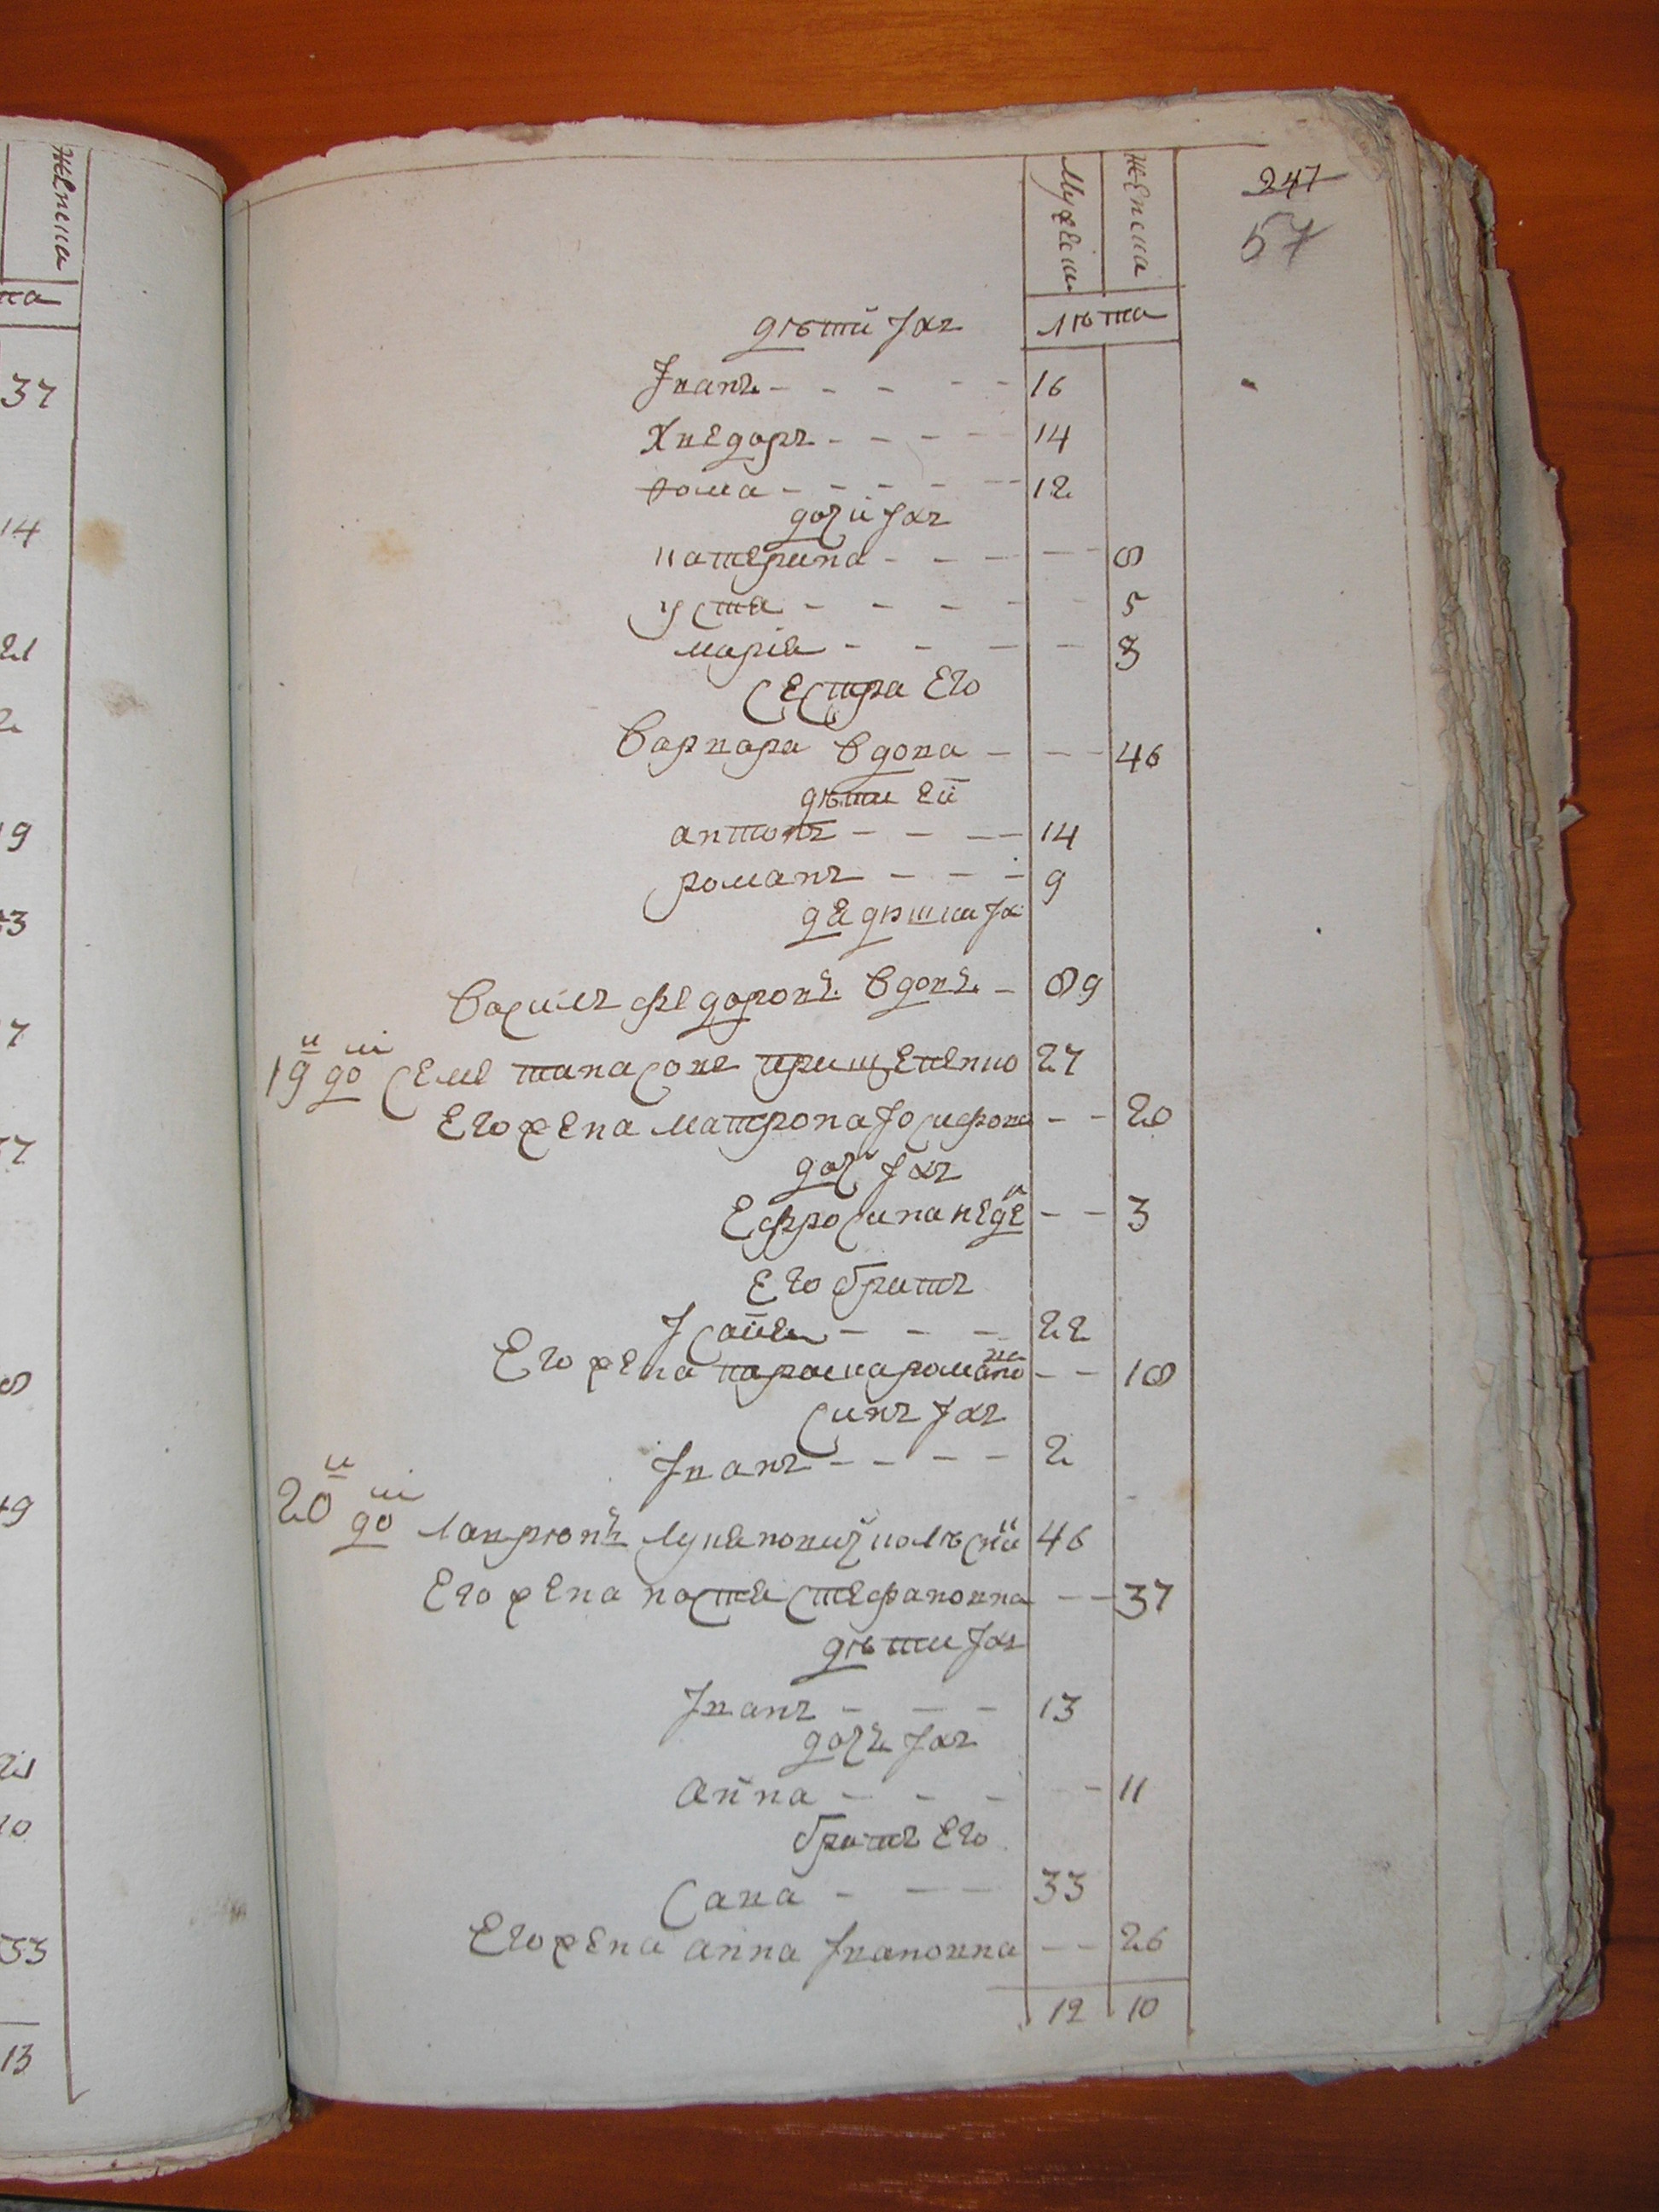 женска
та
37
14
21
2
19
43
7
57
8
49
21
10
53
13
Мужеска
женска
247
57
лѣта
дѣтй Iхъ
Iванъ - - - - - 16
Хведоръ - - - - 14
Ѳома - - - - - 12
дочи Iхъ
катерина - - - - - 8
Устя - - - - - 5
марія - - - - 3
Сестра Его
Варвара Вдова - - - 46
дѣти Еи
антонъ - - - - 14
романъ - - - - 9
дядюшки Iх
Василъ федоровъ Вдовъ - 89
19й двои Семе танасове прищепенко 27
Его жена матрона Iосифова - - 20
дочъ Iхъ
Ефросина - - 3
Его братъ
Iсаия - - - 22
Его жена параска романовна - - 18
Синъ Iхъ
Iванъ - - - - 2
20й двои Лаврѣнъ Лукяновичъ колѣсній 46
Его жена настя Стефановна - - 37
дѣти Iхъ
Iванъ - - - 13
дочъ Iхъ
Анна - - - - 11
братъ Его
Сава - - - 33
Его жена анна Iвановна - - 26
12 10